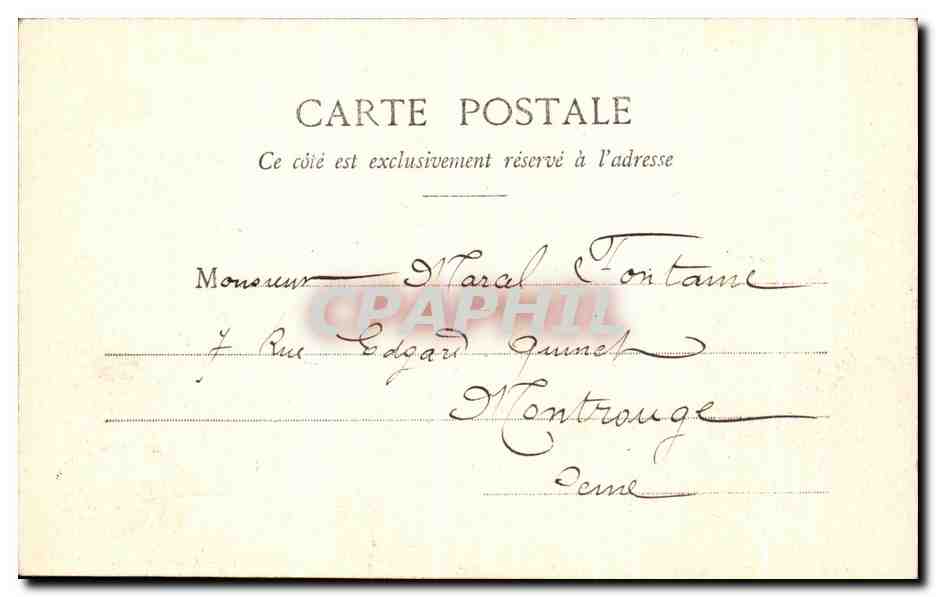 CARTE POSTALE
Ce côté est exclusivement réservé à l'adresse
Monsieur Marcel Fontaine
CPAPHIL
7 Rue Edgard Quinet
Montrouge
Seine